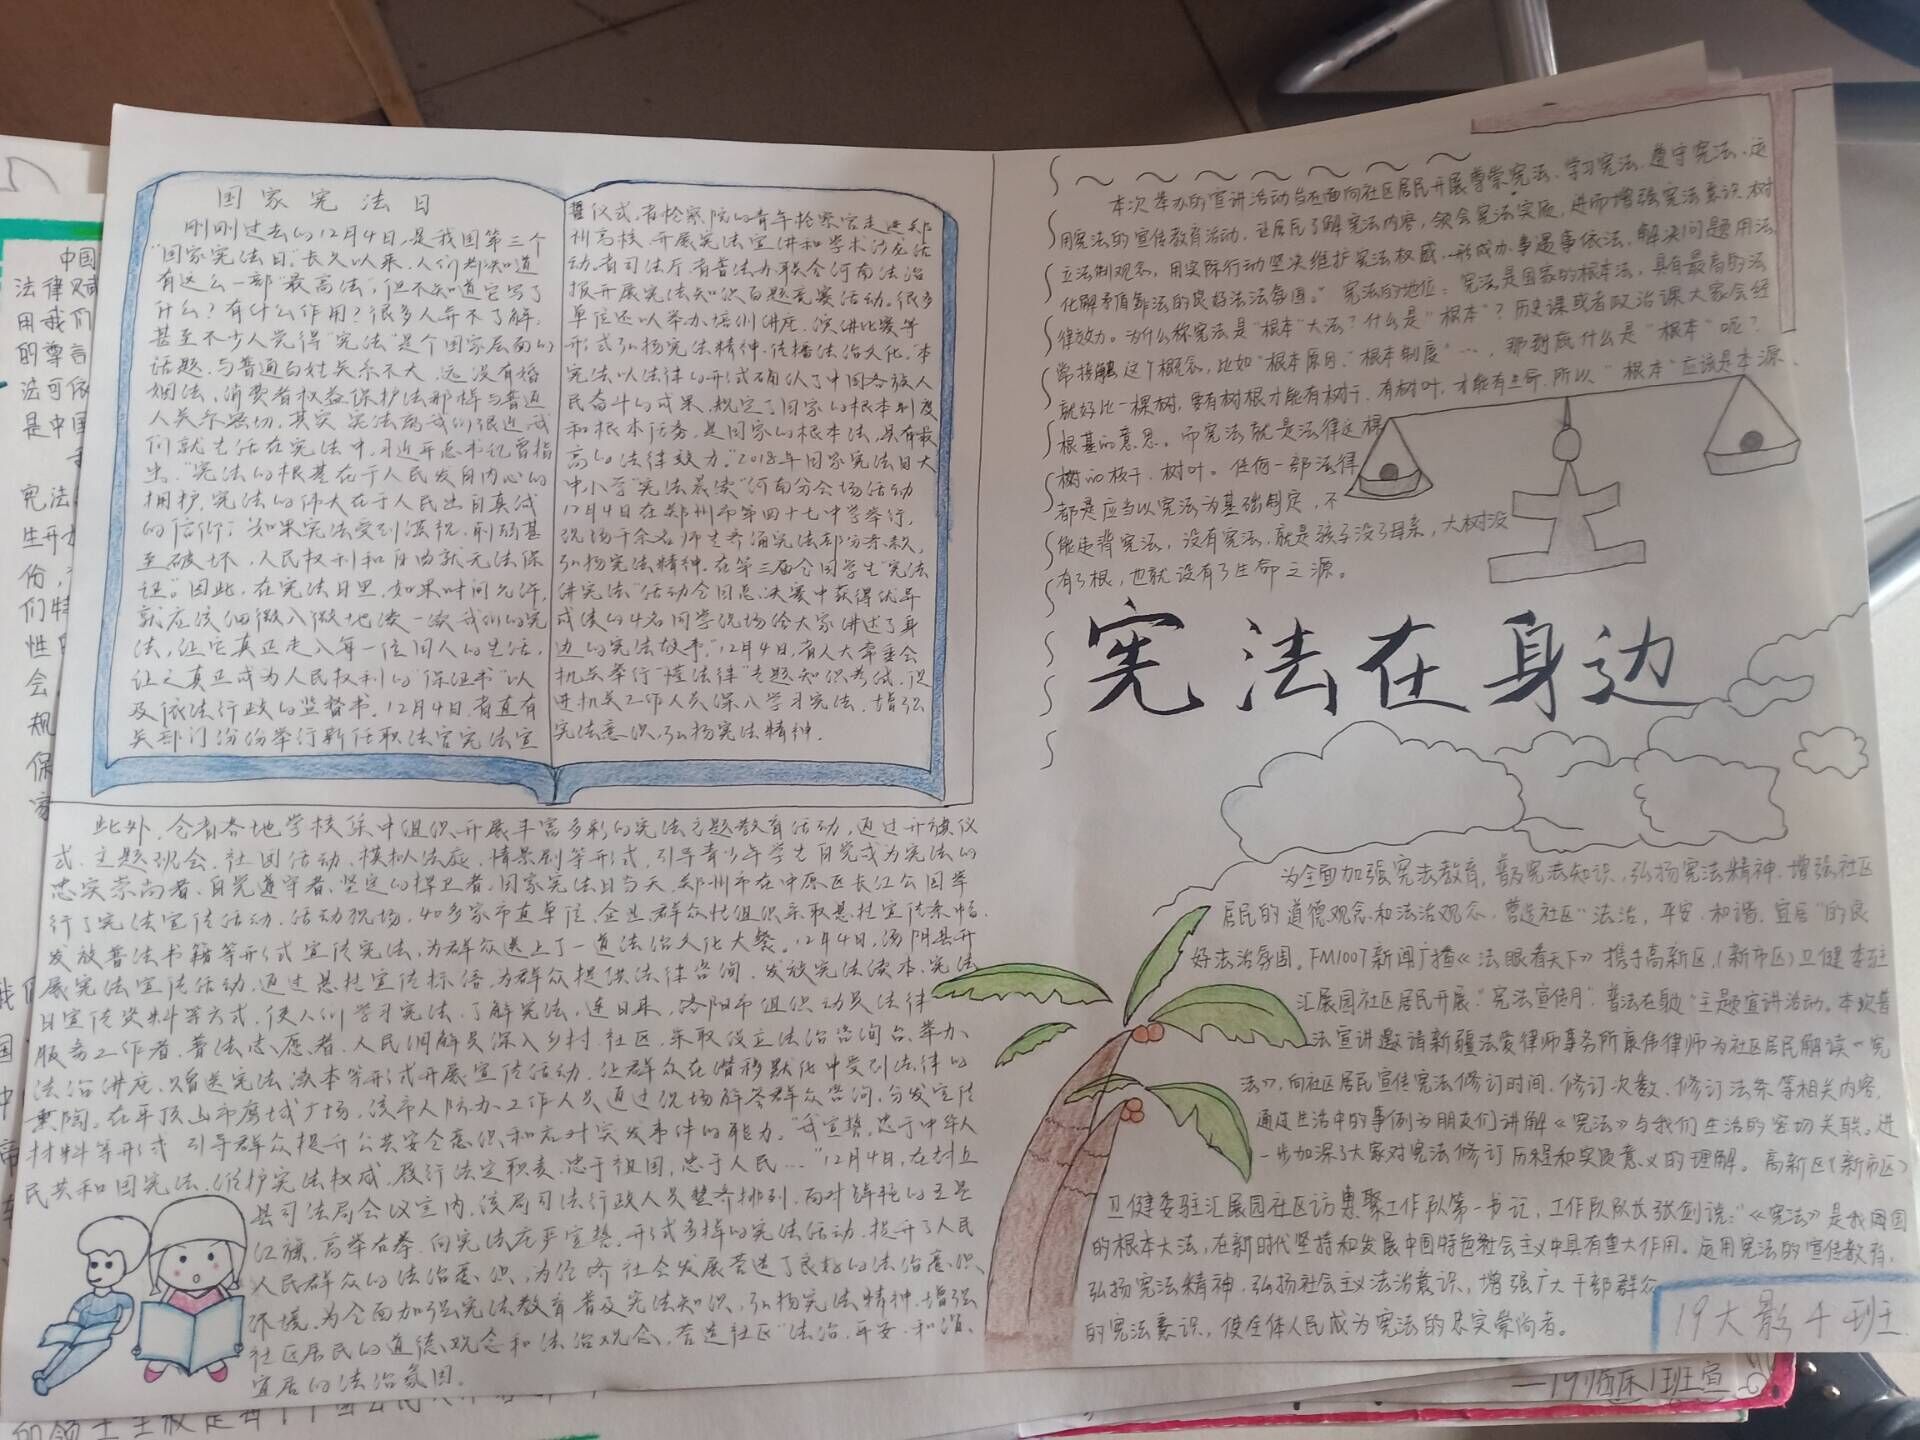 国家宪法日
刚刚过去的12月4日,是我国第三个
“国家宪法日”。长久以来,人们都知道
有这么一部“最高法”,但不知道它写了
什么?有什么作用?很多人并不了解,
甚至不少人觉得“宪法”是个国家层面的
话题,与普通百姓关系不大,远没有婚
姻法,消费者权益保护法那样与普通
人关系密切,其实,宪法离我们很近,我
们就生活在宪法中,习近平总书记曾指
出:“宪法的根基在于人民发自内心的
拥护,宪法的伟大在于人民出自真诚
的信仰;如果宪法受到漠视、削弱甚
至破坏,人民权利和自由就无法保
证。”因此,在宪法日里,如果时间允许,
就应该细微入微地读一读我们的宪
法,让它真正走入每一位国人的生活,
让之真正成为人民权利的“保证书”以
及依法行政的监督书。12月4日,省直有
关部门纷纷举行新任职法官宪法宣
誓仪式,省检察院的青年检察官走进郑
州高校,开展宪法宣讲和学术沙龙活
动,省司法厅、省普法办联合河南法治
报开展宪法知识百题竞赛活动。很多
单位还以举办培训讲座、演讲比赛等
形式弘扬宪法精神,传播法治文化。“本
宪法以法律的形式确认了中国各族人
民奋斗的成果,规定了国家的根本制度
和根本任务,是国家的根本法,具有最
高的法律效力。”2018年国家宪法日大
中小学“宪法晨读”河南分会场活动
12月4日在郑州市第四十七中学举行,
现场千余名师生齐诵宪法部分条款,
弘扬宪法精神。在第三届全国学生“宪法
讲宪法”活动全国总决赛中获得优异
成绩的4名同学现场给大家讲述了身
边的宪法故事。”12月4日,省人大常委会
机关举行“懂法律”专题知识考试,促
进机关工作人员深入学习宪法、增强
宪法意识,弘扬宪法精神。
此外,全省各地学校集中组织开展丰富多彩的宪法主题教育活动,通过升旗仪
式、主题班会、社团活动、模拟法庭、情景剧等形式,引导青少年学生自觉成为宪法的
忠实崇尚者、自觉遵守者、坚定的捍卫者。国家宪法日当天,郑州市在中原区长江公园举
行了宪法宣传活动,活动现场,40多家市直单位、企业、群众性组织采取悬挂宣传条幅、
发放普法书籍等形式宣传宪法,为群众送上了一道法治文化大餐。12月4日,汤阴县开
展宪法宣传活动,通过悬挂宣传标语、为群众提供法律咨询,发放宪法读本、宪法
日宣传资料等方式,使人们学习宪法、了解宪法,连日来,洛阳市组织动员法律
服务工作者、普法志愿者、人民调解员深入乡村、社区,采取设立法治咨询台、举办
法治讲座,赠送宪法读本等形式开展宣传活动,让群众在潜移默化中受到法律的
熏陶。在平顶山市鹰城广场,该市人防办工作人员通过现场解答群众咨询,分发宣传
材料等形式,引导群众提升公共安全意识和应对突发事件的能力。“我宣誓,忠于中华人
民共和国宪法,维护宪法权威,履行法定职责,忠于祖国,忠于人民…”12月4日,在封丘
县司法局会议室内,该局司法行政人员整齐排列,面对鲜艳的五星
红旗,高举右拳,向宪法庄严宣誓。形式多样的宪法活动,提升了人民
人民群众的法治意识,为经济社会发展营造了良好的法治意识
环境。为全面加强宪法教育普及宪法知识,弘扬宪法精神,增强
社区居民的道德观念和法治观念,营造社区“法治、平安、和谐、
宜居的法治氛围。
本次举办的宣讲活动旨在面向社区居民开展尊崇宪法、学习宪法、遵守宪法、运
用宪法的宣传教育活动,让居民了解宪法内容,领会宪法实质,进而增强宪法意识,树
立法制观念,用实际行动坚决维护宪法权威,形成办事遇事依法,解决问题用法
化解矛盾靠法的良好法法氛围。”宪法的地位:宪法是国家的根本法,具有最高的法
律效力。为什么称宪法是“根本”大法?什么是“根本”?历史课或者政治课大家会经
常接触这个概念,比如“根本原因”“根本制度”…,那到底什么是“根本”呢?
就好比一棵树,要有树根才能有树干,有树叶,才能有生命,所以“根本”应该是本源、
根基的意思。而宪法就是法律这棵
树的枝干、树叶。任何一部法律
都是应当以宪法为基础制定,不
能违背宪法,没有宪法,就是孩子没了母亲,大树没
有了根,也就没有了生命之源。
宪法在身边
为全面加强宪法教育,普及宪法知识,弘扬宪法精神,增强社区
居民的道德观念和法治观念,营造社区“法治,平安,和谐,宜居”的良
好法治氛围。FM1007新闻广播《法眼看天下》携手高新区(新市区)卫健委驻
汇展园社区居民开展“宪法宣传月”普法在身边”主题宣讲活动。本次普
法宣讲邀请新疆法爱律师事务所康伟律师为社区居民解读《宪
法》,向社区居民宣传宪法修订时间、修订次数、修订法条等相关内容,
通过生活中的事例为朋友们讲解《宪法》与我们生活的密切关联。进
一步加深了大家对宪法修订历程和实质意义的理解。高新区(新市区)
卫健委驻汇展园社区访惠聚工作队第一书记、工作队队长张剑说:“《宪法》是我国国
的根本大法,在新时代坚持和发展中国特色社会主义中具有重大作用。运用宪法的宣传教育,
弘扬宪法精神,弘扬社会主义法治意识,增强广大干部群众
的宪法意识,使全体人民成为宪法的忠实崇尚者。
19大影4班
一19临床1班宣
中国
法律赋
用我们
的尊言
法可依
是中国
宪法
生开
份,
们特
性
会
规
保
家
我们
国
中